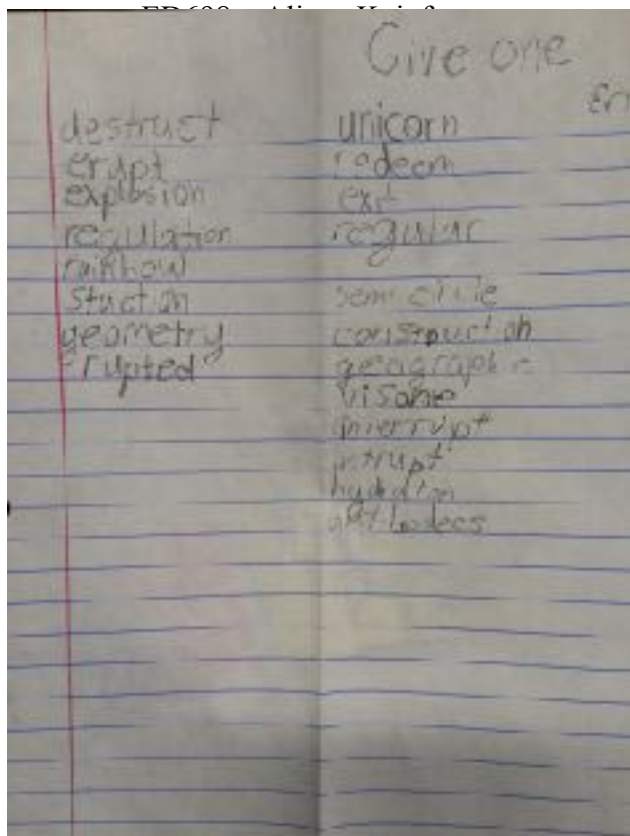 Give one
destruct
erupt
explosion
regulation
rainbow
geometry
rupted
unicorn
redeem
exit
regular
semi circle
construction
geographic
interrupt
intrupt